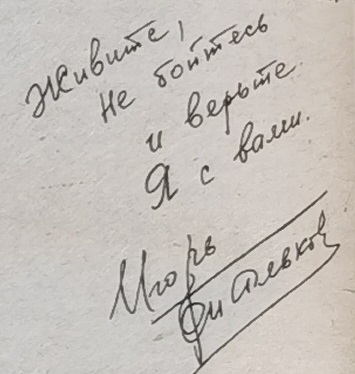 Живите,
не бойтесь
и верьте.
Я с вами.
Игорь